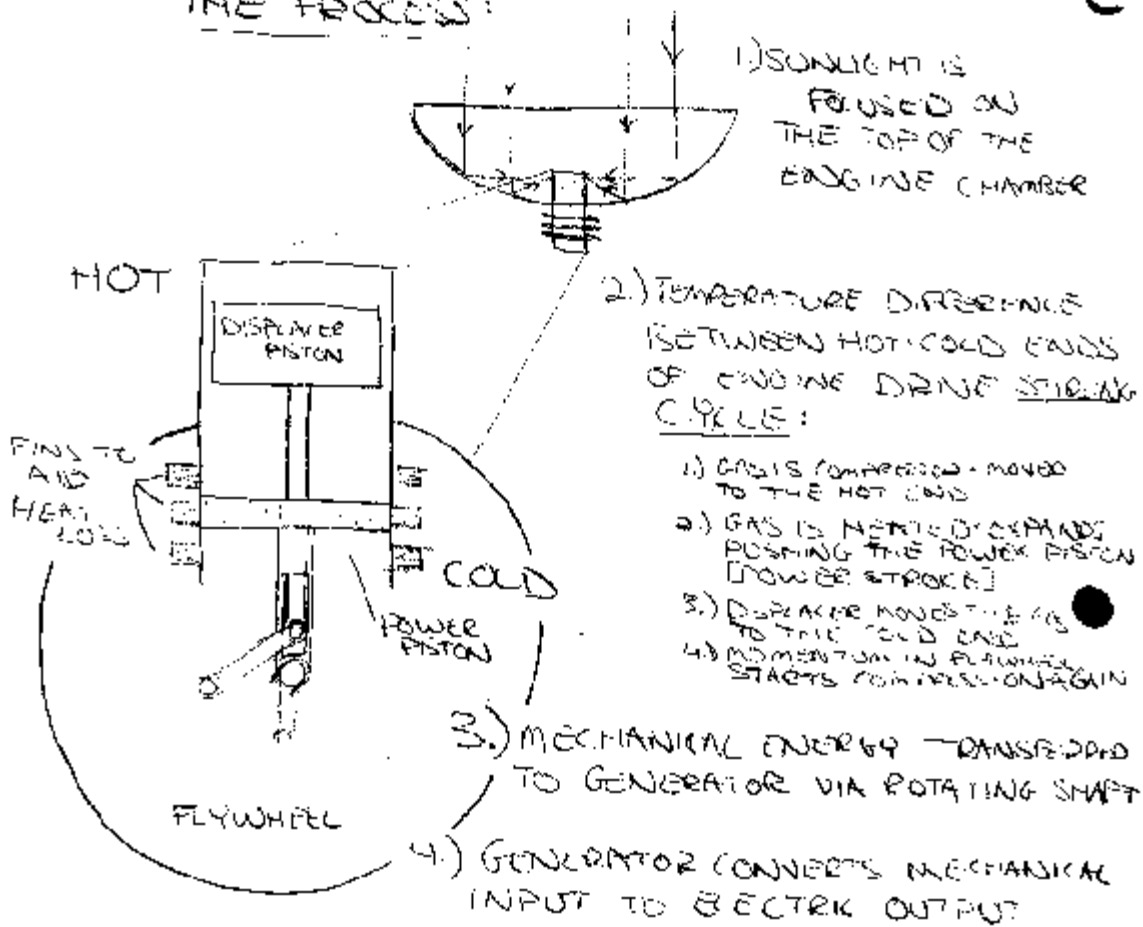 THE PROCESS:
1.) SUNLIGHT IS
FOCUSED ON
THE TOP OF THE
ENGINE CHAMBER
HOT
DISPLACER
PISTON
FINS TO
AID
HEAT
LOSS
COLD
POWER
PISTON
FLYWHEEL
2.) TEMPERATURE DIFFERENCE
BETWEEN HOT COLD ENDS
OF ENGINE DRIVE STIRLING
CYCLE:
1.) GAS IS COMPRESSED + MOVED
TO THE HOT END
2.) GAS IS HEATED + EXPANDS,
PUSHING THE POWER PISTON
[POWER STROKE]
3.) DISPLACER MOVES THE GAS
TO THE COLD END
4.) MOMENTUM IN FLYWHEEL
STARTS COMPRESSION AGAIN
3.) MECHANICAL ENERGY TRANSFERRED
TO GENERATOR VIA ROTATING SHAFT
4.) GENERATOR CONVERTS MECHANICAL
INPUT TO ELECTRIC OUTPUT